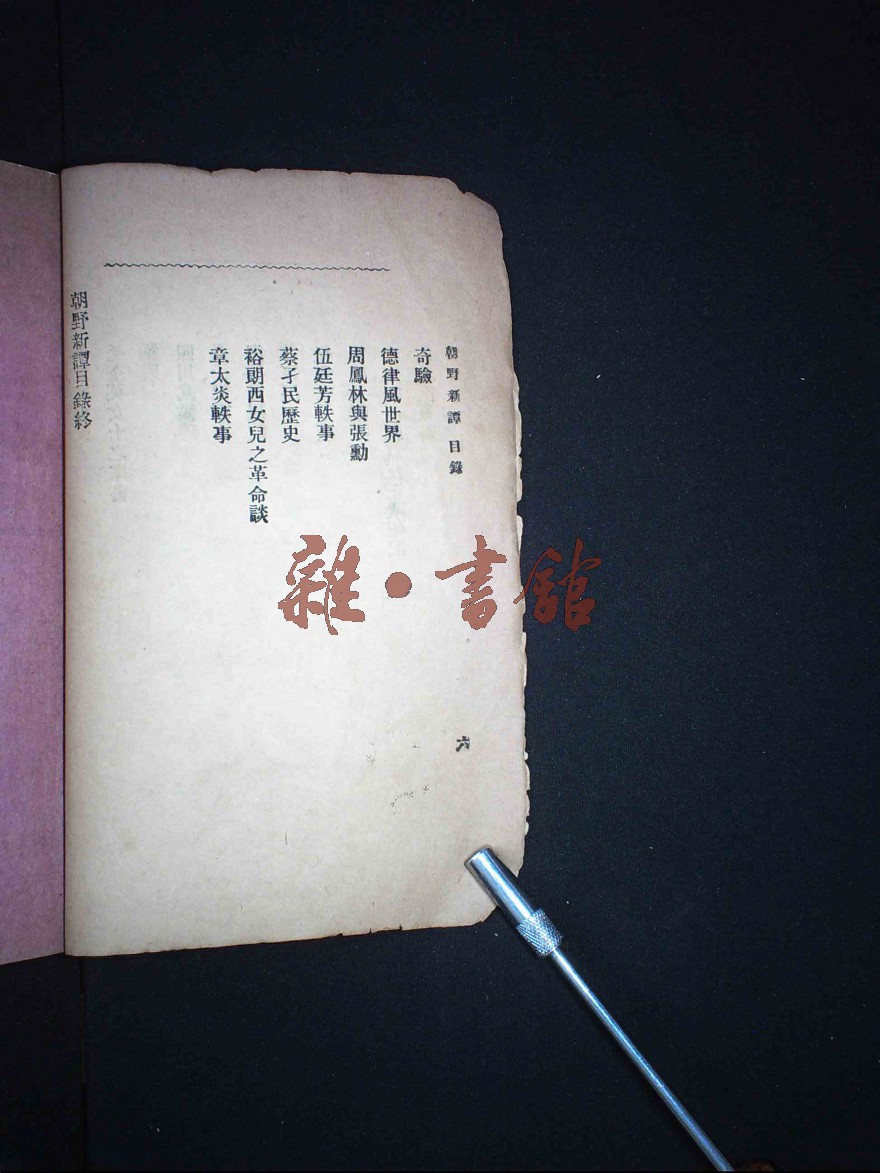 朝野新譚 目錄
六
奇驗
德律風世界
周鳳林與張勳
伍廷芳軼事
蔡孑民歷史
裕朗西女兒之革命談
章太炎軼事
朝野新譚目錄終
雜·書館